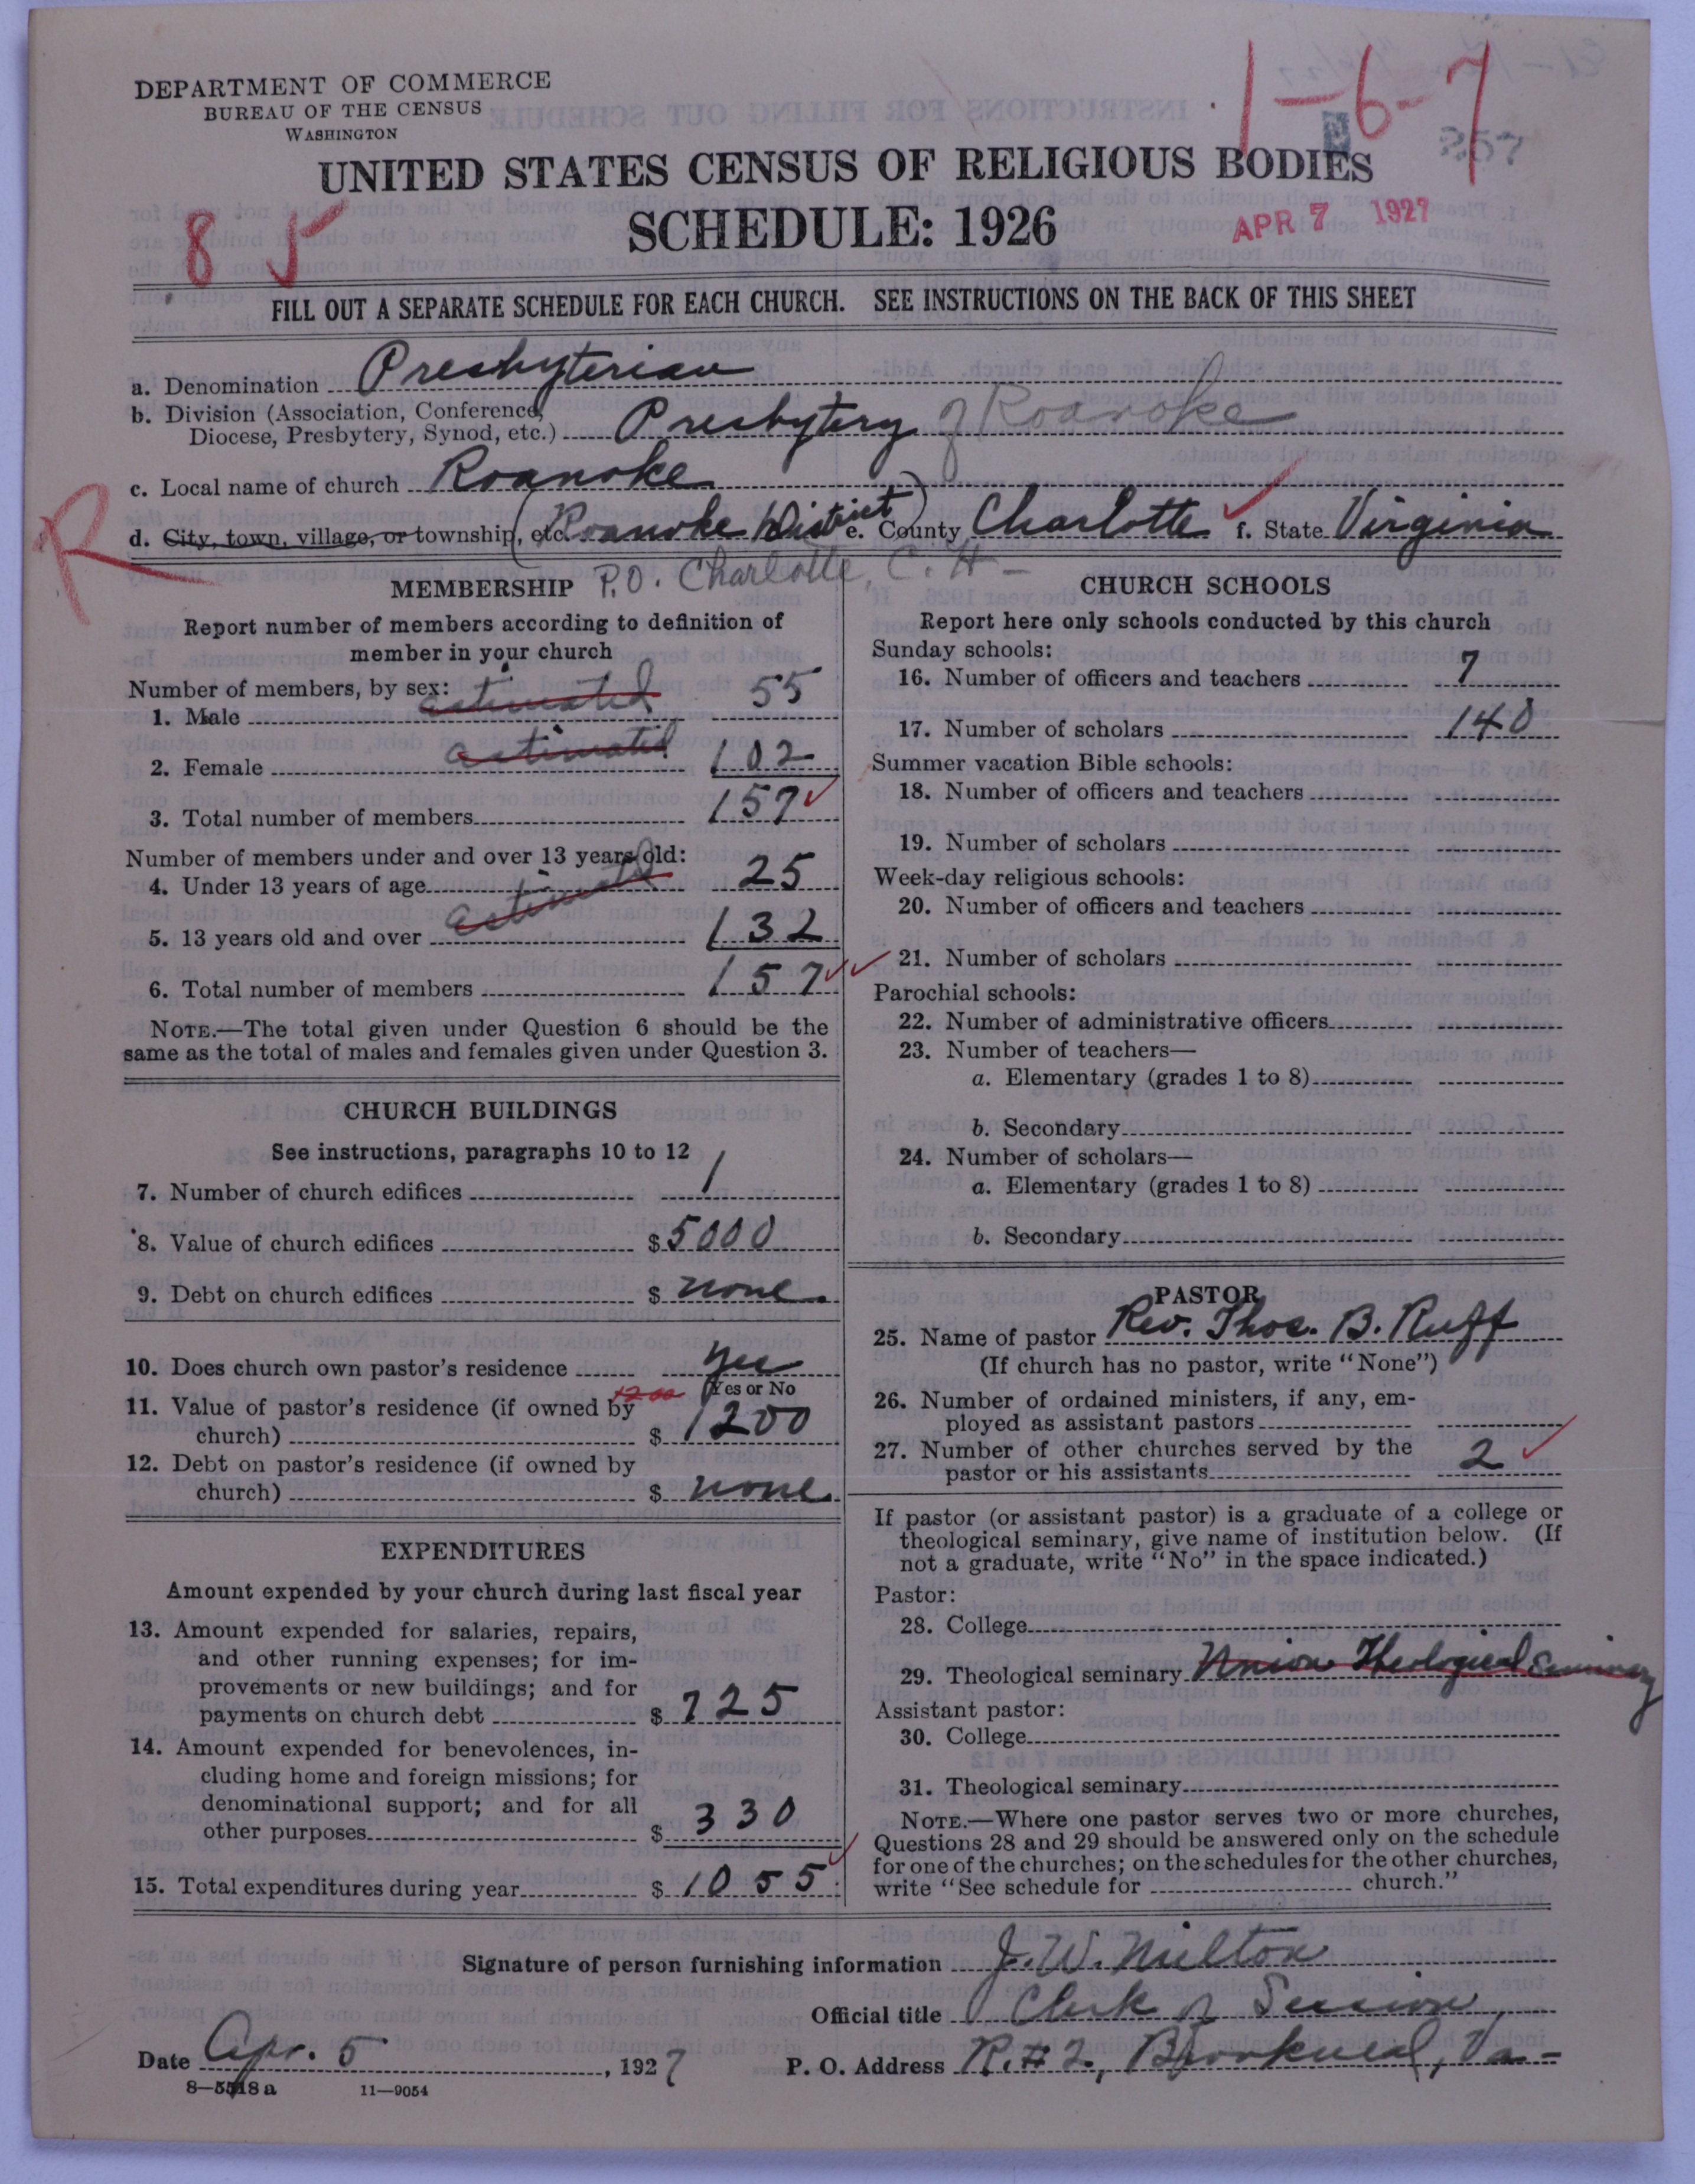 DEPARTMENT OF COMMERCE
BUREAU OF THE CENSUS
WASHINGTON
1-6-7
257
UNITED STATES CENSUS OF RELIGIOUS BODIES
SCHEDULE: 1926
8 5
APR 7 1927
FILL OUT A SEPARATE SCHEDULE FOR EACH CHURCH. SEE INSTRUCTIONS ON THE BACK OF THIS SHEET
a. Denomination Presbyterian
b. Division (Association, Conference,
Diocese, Presbytery, Synod, etc.) Presbytery of Roanoke
c. Local name of church Roanoke
R
d. City, town, village, or township, etc. (Roanoke District) e. County Charlotte f. State Virginia
P.O. Charlotte, C. H-
MEMBERSHIP
Report number of members according to definition of
member in your church
Number of members, by sex:
1. Male estimated 55
2. Female estimated 102
3. Total number of members 157
Number of members under and over 13 years old:
4. Under 13 years of age estimated 25
5. 13 years old and over 132
6. Total number of members 157
NOTE.—The total given under Question 6 should be the
same as the total of males and females given under Question 3.
CHURCH BUILDINGS
See instructions, paragraphs 10 to 12
7. Number of church edifices 1
8. Value of church edifices $ 5000
9. Debt on church edifices $ none
10. Does church own pastor's residence yes
Yes or No
11. Value of pastor's residence (if owned by
church) $ 1200
12. Debt on pastor's residence (if owned by
church) $ none
EXPENDITURES
Amount expended by your church during last fiscal year
13. Amount expended for salaries, repairs,
and other running expenses; for im-
provements or new buildings; and for
payments on church debt $ 725
14. Amount expended for benevolences, in-
cluding home and foreign missions; for
denominational support; and for all
other purposes $ 330
15. Total expenditures during year $ 1055
CHURCH SCHOOLS
Report here only schools conducted by this church
Sunday schools:
16. Number of officers and teachers 7
17. Number of scholars 140
Summer vacation Bible schools:
18. Number of officers and teachers
19. Number of scholars
Week-day religious schools:
20. Number of officers and teachers
21. Number of scholars
Parochial schools:
22. Number of administrative officers
23. Number of teachers—
a. Elementary (grades 1 to 8)
b. Secondary
24. Number of scholars—
a. Elementary (grades 1 to 8)
b. Secondary
PASTOR
25. Name of pastor Rev. Thos. B. Ruff
(If church has no pastor, write "None")
26. Number of ordained ministers, if any, em-
ployed as assistant pastors
27. Number of other churches served by the
pastor or his assistants 2
If pastor (or assistant pastor) is a graduate of a college or
theological seminary, give name of institution below. (If
not a graduate, write "No" in the space indicated.)
Pastor:
28. College
29. Theological seminary Union Theological Seminary
Assistant pastor:
30. College
31. Theological seminary
NOTE.—Where one pastor serves two or more churches,
Questions 28 and 29 should be answered only on the schedule
for one of the churches; on the schedules for the other churches,
write "See schedule for church."
Signature of person furnishing information J. W. Milton
Official title Clerk of Session
Date Apr. 5, 1927 P. O. Address R. # 2, Brookneal, Va-
8—5518 a 11—9054